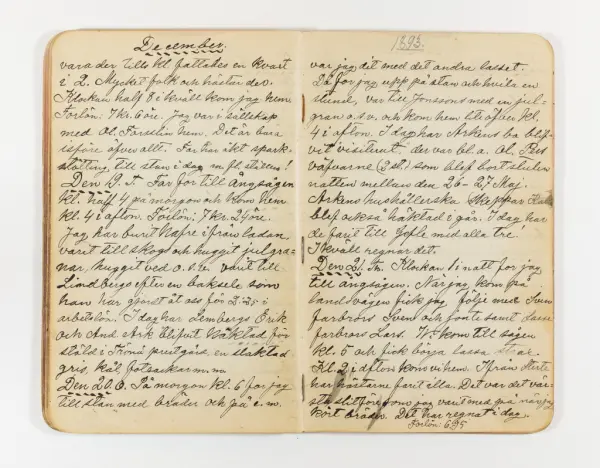 December.
vara der tills kl fattades en kvart
i 2. Mycket folk och hästar der.
Klockan half 8 i kväll kom jag hem
Förlön: 7 kr. 6 öre. Jag var i sällskap
med Ol. Persslin hem. Det är bara
isföre öfver allt. Far har åkt spark-
stötting, till stan i dag m.fl. ställen!
Den 19. T. Far för till ångsågen
kl. half 4 på morgon och kom hem
kl. 4 i afton. Förlön: 7 kr. 24 öre.
Jag har burit hafre ifrån ladan,
varit till skog och huggit julgra-
nar, huggit ved o.s.v. varit till
Lindbergs efter en baksele som
han har gjordt åt oss för 2:35 i
arbetslön. I dag har Lembergs Erik
och And. Ark blifvit häktad för
stöld i Trönö prestgård, en slaktad
gris, kål, fotsackar m.m.
Den 20 O. Så morgon kl. 6 for jag
till stan med bräder och på e.m.
1893.
var jag dit med det andra lasset.
Då for jag upp på stan och hvila en
stund, var till Jonssons med en jul-
gran o.s.v. och kom hem lite öfver kl.
4 i afton. I dag har Arkens ba blif-
vit visiterat, der var bl.a. Ol. Pers
väfvarne (2 st.) som blef bort stulen
natten mellan den 26-27 Maj.
Arkens hushållerska Skeppar
blef också häktad i går. I dag har
de farit till Gefle med alla tre!
I kväll regnar det.
Den 21. Th. Klockan 1 i natt for jag
till ångsågen. När jag kom på
landsvägen fick jag följe med Sven
farbrors Sven och förste samt Lasse
farbrors Lars. Vi kom till sågen
kl. 5 och fick börja lassa strax.
Kl. 2 i afton kom vi hem. Ifrån
har hästarne farit illa. Det var det vär-
sta slitföre som jag varit med på när jag
kört bräder. Det har regnat i dag.
Förlön: 6.95